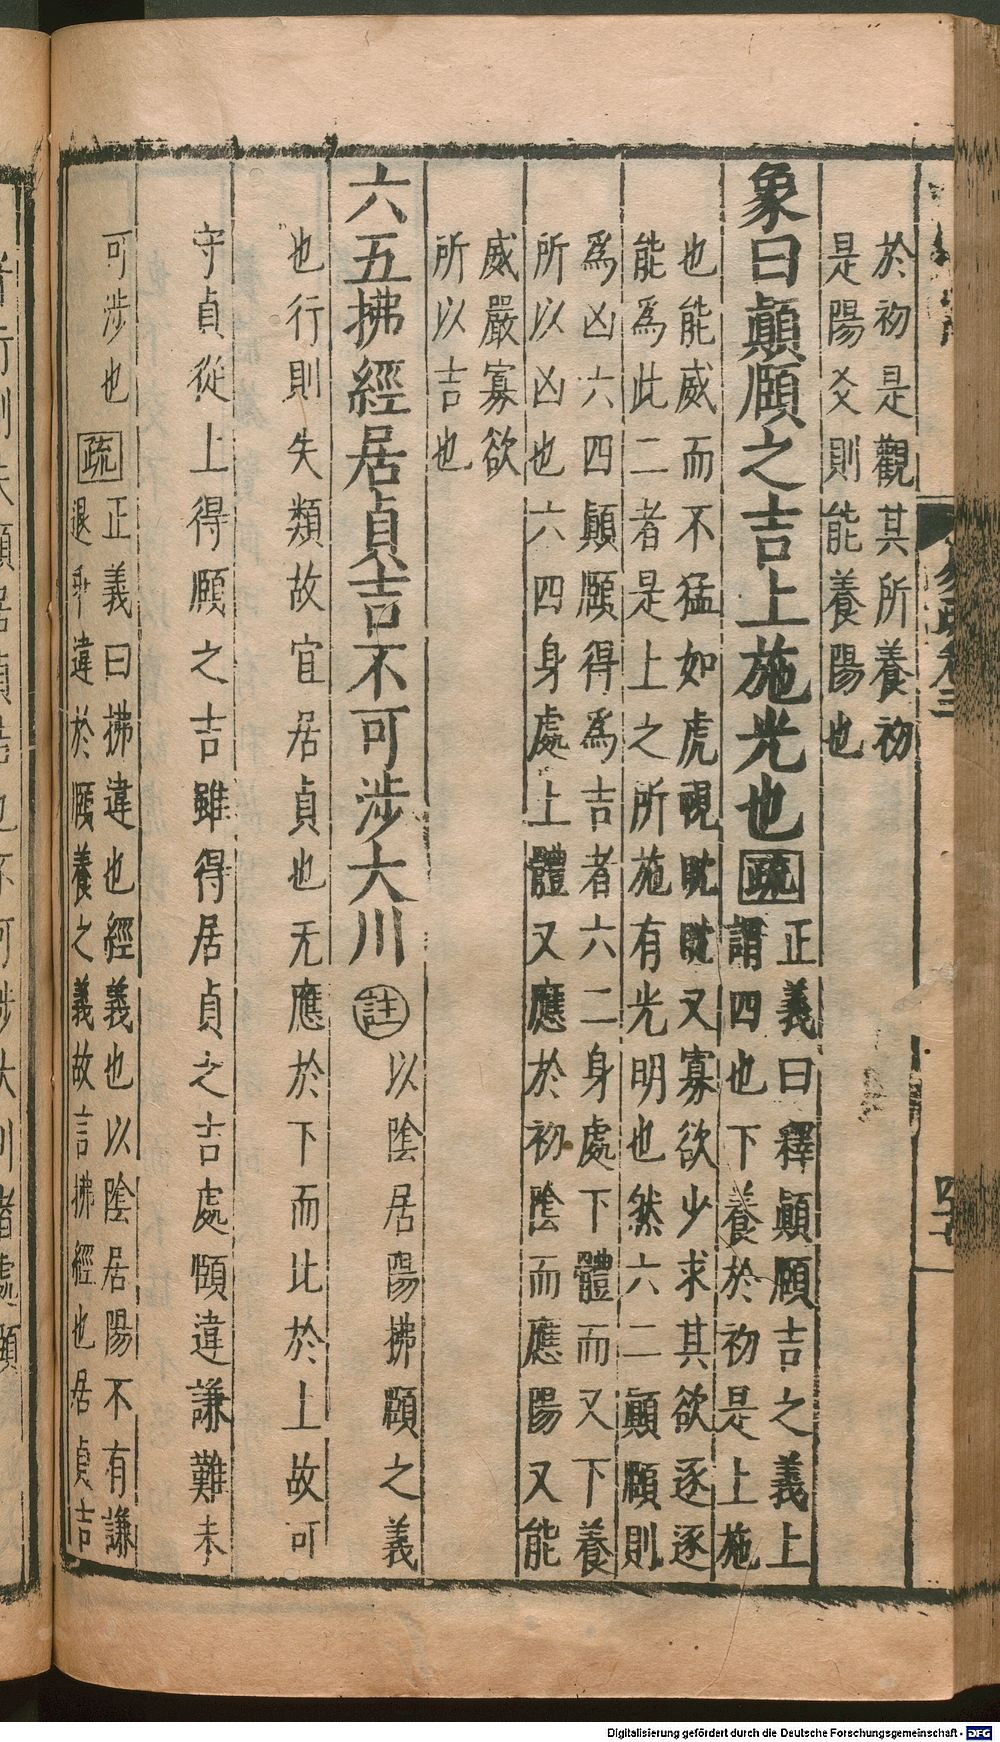 於初是觀其所養初
是陽爻則能養陽也
象曰顛頤之吉上施光也疏
正義曰釋顛頤吉之義上
謂四也下養於初是上施
也能威而不猛如虎視眈眈又寡欲少求其欲逐逐
能爲此二者是上之所施有光明也然六二顛頤則
爲凶六四顛頤得爲吉者六二身處下體而又下養
所以凶也六四身處上體又應於初陰而應陽又能
威嚴寡欲
所以吉也
六五拂經居貞吉不可涉大川註以陰居陽拂頤之義
也行則失類故宜居貞也无應於下而比於上故可
守貞從上得頤之吉雖得居貞之吉處頤違謙難未
可涉也疏
正義曰拂違也經義也以陰居陽不有謙
退乖違於頤養之義故言拂經也居貞吉
者行則失類居貞吉也不可涉大川者處頤
易疏卷三
Digitalisierung gefördert durch die Deutsche Forschungsgemeinschaft - DFG